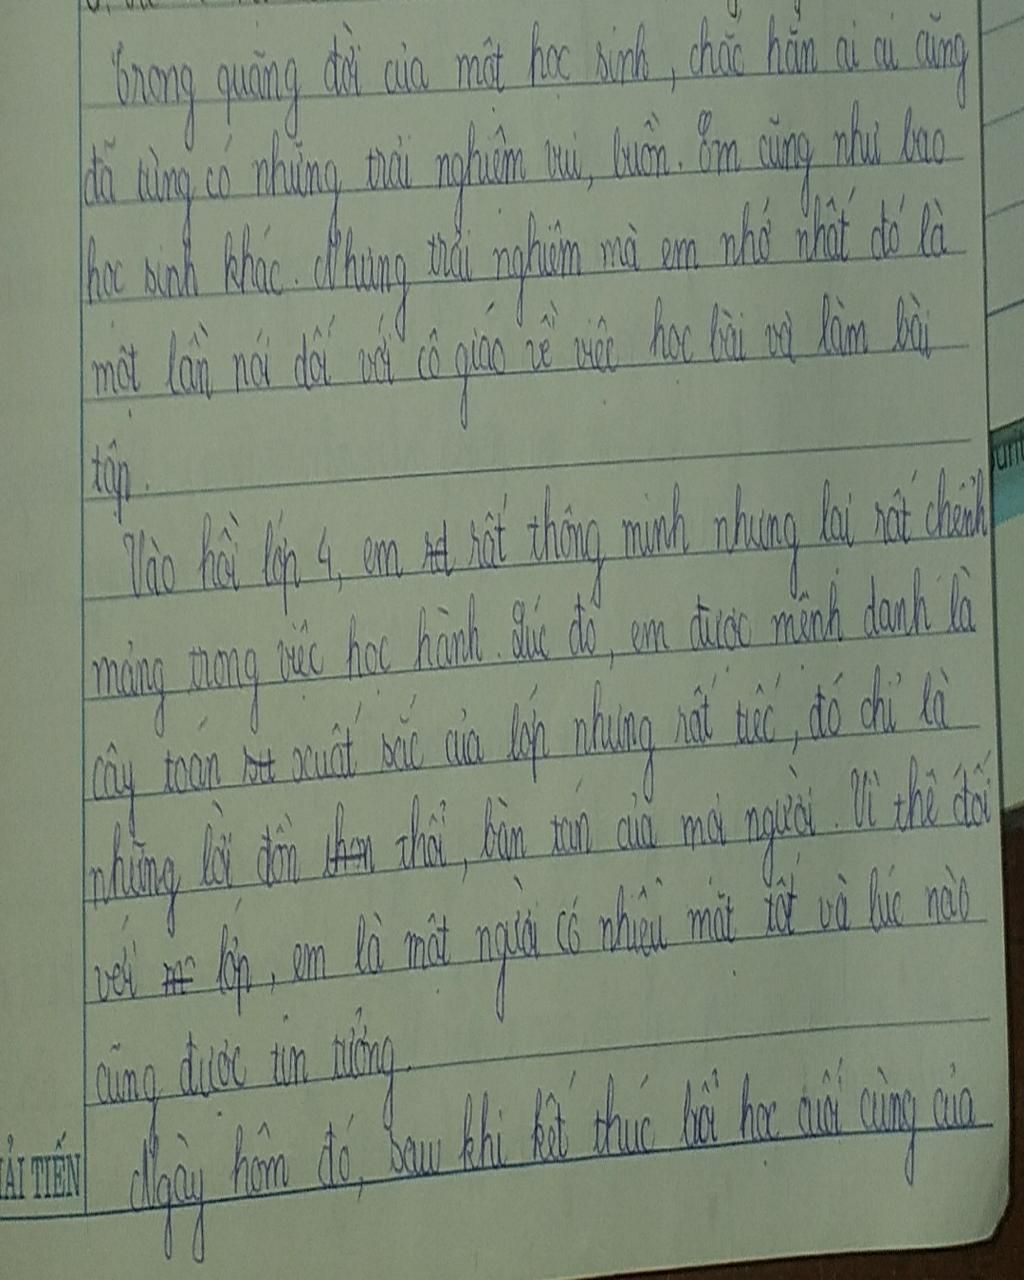 Trong quãng đời của một học sinh, chắc hẳn ai ai cũng
đã từng có những trải nghiệm vui, buồn. Em cũng như bao
học sinh khác. Nhưng trải nghiệm mà em nhớ nhất đó là
một lần nói dối với cô giáo về việc học bài và làm bài
tập.
Vào hồi lớp 4, em rất thông minh nhưng lại rất chểnh
mảng trong việc học hành. Lúc đó, em được mệnh danh là
cây toán xuất sắc của lớp nhưng rất tiếc, đó chỉ là
những lời đồn thổi, bàn tán của mọi người. Vì thế đối
với lớp, em là một người có nhiều mặt tốt và lúc nào
cũng được tin tưởng.
ẢI TIẾN
Ngày hôm đó, sau khi kết thúc buổi học cuối cùng của